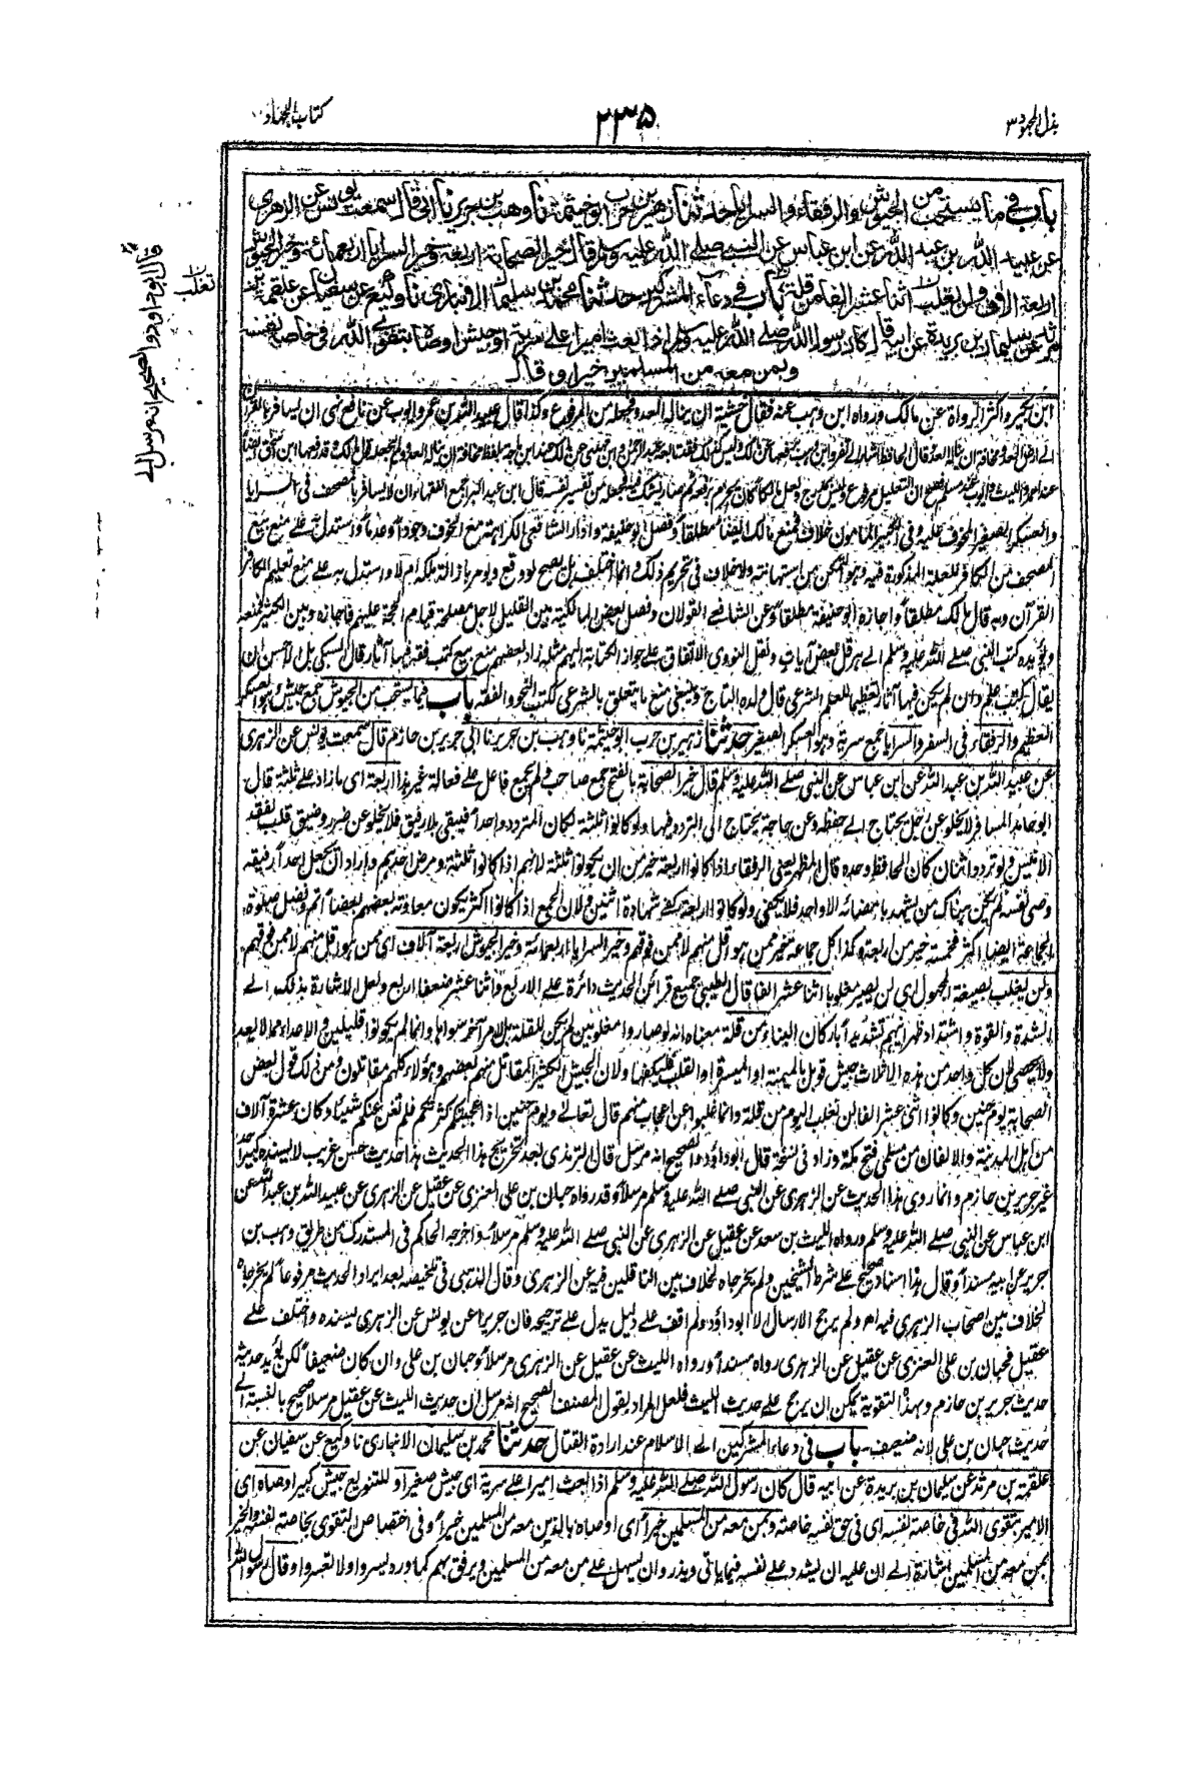 بذل المجهود ٣
٢٣٥
كتاب الجهاد
باب فيما يستحب من الجيوش والرفقاء والسرايا حدثنا زهير بن حرب ابو خيثمة نا وهب بن جرير نا ابي قال سمعت يونس عن الزهري
عن عبيد الله بن عبد الله عن ابن عباس عن النبي صلے الله عليه وسلم قال خير الصحابة اربعة وخير السرايا اربعمائة وخير الجيوش
اربعة الاف ولن يغلب اثنا عشر الفا من قلة باب في دعاء المشركين حدثنا محمد بن سليمان الانباري نا وكيع عن سفيان عن علقمة بن
مرثد عن سليمان بن بريدة عن ابيه قال كان رسول الله صلے الله عليه وسلم اذا بعث اميرا علے سرية او جيش اوصاه بتقوى الله في خاصة نفسه
وبمن معه من المسلمين خيرا وقال
تغلب
قال ابو داود والصحيح انه مرسل
ابن بكير واكثر الرواة عن مالك ورواه ابن وهب عنه فقال خشية ان يناله العدو فجعله من المرفوع وكذا قال عبيد الله بن عمر وايوب عن نافع نهى ان يسافر بالقرآن
الے ارض العدو مخافة ان يناله العدو قال الحافظ
قال ابن عبد البر اجمع الفقهاء ان لا يسافر بالمصحف في السرايا
والعسكر الصغير المخوف عليه وفي الكبير المامون خلاف فمنع مالك ايضا مطلقا وفصل ابو حنيفة وادار الشافعي الكراهة مع الخوف وجودا وعدما واستدل به علے منع بيع
المصحف من الكافر للعلة المذكورة فيه وهو التمكن من استهانته ولا خلاف في تحريم ذلك وانما اختلف هل يصح لو وقع ويؤمر بازالة ملكه ام لا واستدل به علے منع تعليم الكافر
القرآن وبه قال مالك مطلقا واجازه ابو حنيفة مطلقا وعن الشافعي القولان وفصل بعض المالكية بين القليل لاجل مصلحة قيام الحجة عليهم فاجازه وبين الكثير فمنعه
ويؤيده كتب النبي صلے الله عليه وسلم الے هرقل بعض آيات ونقل النووي الاتفاق علے جواز الكتابة اليهم مثله زاد بعضهم منع بيع كتب فقه فيها آثار قال السبكي بل الاحسن ان
يقال كتب علم وان لم يكن فيها آثار تعظيما للعلم الشرعي قال ولده التاج وينبغي منع ما يتعلق بالشرعي ككتب النحو والفقه باب فيما يستحب من الجيوش جمع جيش وهو العسكر
العظيم والرفقاء في السفر والسرايا جمع سرية وهو العسكر الصغير حدثنا زهير بن حرب ابو خيثمة نا وهب بن جرير نا ابي جرير بن حازم قال سمعت يونس عن الزهري
عن عبيد الله بن عبد الله عن ابن عباس عن النبي صلے الله عليه وسلم قال خير الصحابة بالفتح جمع صاحب ولم يجمع فاعل علے فعالة غير هذا اربعة اي ما زاد علے ثلثة قال
ابو حامد المسافر لا يخلو عن رحل يحتاج الے حفظه وعن حاجة يحتاج الى التردد فيها ولو كانوا ثلثة لكان المتردد واحدا فيبقى بلا رفيق فلا يخلو عن ضرر وضيق قلب لفقد
الانيس ولو تردد اثنان كان الحافظ وحده قال المظهر يعني الرفقاء اذا كانوا اربعة خير من ان يكونوا ثلثة لانهم اذا كانوا ثلثة ومرض احدهم واراد ان يجعل احدا رفيقه
وصى نفسه لم يكن هناك من يشهد بامضائه الا واحد فلا يكفي ولو كانوا اربعة كفے شهادة اثنين ولان الجمع اذا كانوا اكثر يكون معاونة بعضهم بعضا اتم وفضل صلوة
الجماعة ايضا اكثر فخمسة خير من اربعة وكذا كل جماعة خير ممن هو اقل منهم لا ممن فوقهم وخير السرايا اربعمائة وخير الجيوش اربعة آلاف اي ممن هو اقل منهم لا ممن فوقهم
ولن يغلب بصيغة المجهول اي لن يصير مغلوبا اثنا عشر الفا قال الطيبي جميع قرائن الحديث دائرة علے الاربع واثنا عشر ضعفا اربع ولعل الاشارة بذلك الے
الشدة والقوة واشتداد ظهرانيهم تشديدا باركان البناء من قلة معناه انه لو صاروا مغلوبين لم يكن للقلة بل لامر آخر سواها وانما لم يكونوا قليلين والاعداء مما لا يعد
ولا يحصى لان كل واحد من هذه الاثلاث جيش قوبل بالميمنة او الميسرة او القلب فليكفها ولان الجيش الكثير المقاتل منهم بعضهم وهؤلاء كلهم مقاتلون ومن ذلك قول بعض
الصحابة يوم حنين وكانوا اثنى عشر الفا لن نغلب اليوم من قلة وانما غلبوا عن اعجاب منهم قال تعالے ويوم حنين اذ اعجبتكم كثرتكم فلم تغن عنكم شيئا وكان عشرة آلاف
من اهل المدينة والالفان من مسلمي فتح مكة وزاد في نسخة قال ابو داؤد والصحيح انه مرسل قال الترمذي بعد تخريج هذا الحديث هذا حديث حسن غريب لا يسنده كبير احد
غير جرير بن حازم وانما روي هذا الحديث عن الزهري عن النبي صلے الله عليه وسلم مرسلا وقد رواه حبان بن علي العنزي عن عقيل عن الزهري عن عبيد الله بن عبد الله عن
ابن عباس عن النبي صلے الله عليه وسلم ورواه الليث بن سعد عن عقيل عن الزهري عن النبي صلے الله عليه وسلم مرسلا واخرجه الحاكم في المستدرك من طريق وهب بن
جرير عن ابيه مسندا وقال هذا اسناد صحيح علے شرط الشيخين ولم يخرجاه لخلاف بين الناقلين فيه عن الزهري وقال الذهبي في تلخيصه بعد ايراد الحديث مرفوعا لم يخرجاه
لخلاف بين اصحاب الزهري فيه اه ولم يرجح الارسال الا ابو داؤد ولم اقف علے دليل يدل علے ترجيحه فان جريرا عن يونس عن الزهري يسنده واختلف علے
عقيل فحبان بن علي العنزي عن عقيل عن الزهري رواه مسندا ورواه الليث عن عقيل عن الزهري مرسلا وحبان بن علي وان كان ضعيفا لكن يؤيد حديثه
حديث جرير بن حازم وبهذا التقوية يمكن ان يرجح علے حديث الليث فلعل المراد بقول المصنف الصحيح انه مرسل ان حديث الليث عن عقيل مرسلا صحيح بالنسبة الے
حديث حبان بن علي لانه ضعيف۔ باب في دعاء المشركين الے الاسلام عند ارادة القتال حدثنا محمد بن سليمان الانباري نا وكيع عن سفيان عن
علقمة بن مرثد عن سليمان بن بريدة عن ابيه قال كان رسول الله صلے الله عليه وسلم اذا بعث اميرا علے سرية اي جيش صغير او للتنويع جيش كبير اوصاه اي
الامير بتقوى الله في خاصة نفسه اي في حق نفسه خاصة وبمن معه من المسلمين خيرا اي اوصاه بالذين معه من المسلمين خيرا وفي اختصاص التقوى بخاصة نفسه والخير
بمن معه من المسلمين اشارة الے ان عليه ان يشدد علے نفسه فيما ياتي ويذر وان يسهل علے من معه من المسلمين ويرفق بهم كما ورد يسروا ولا تعسروا وقال رسول الله